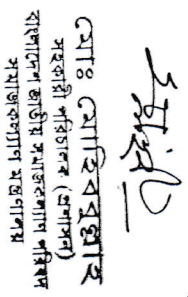 মোঃ মোহিবুল্লাহ
সহকারী পরিচালক (প্রশাসন)
বাংলাদেশ জাতীয় সমাজকল্যাণ পরিষদ
সমাজকল্যাণ মন্ত্রণালয়